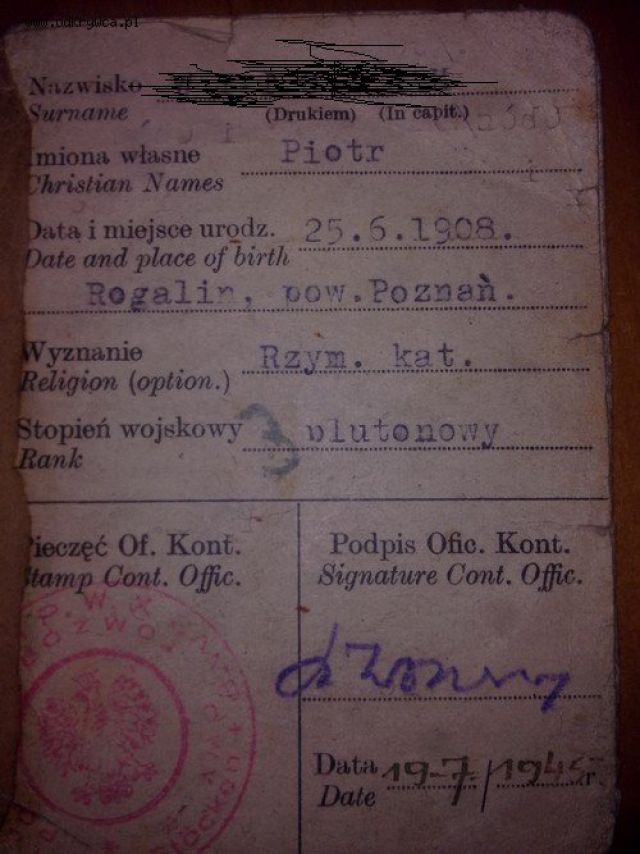 www.odkrywca.pl
Nazwisko
Surname (Drukiem) (In capit.)
Imiona własne Piotr
Christian Names
Data i miejsce urodz. 25.6.1908.
Date and place of birth
Rogalin, pow.Poznań.
Wyznanie Rzym. kat.
Religion (option.)
Stopień wojskowy 3 plutonowy
Rank
Pieczęć Of. Kont. Podpis Ofic. Kont.
Stamp Cont. Offic. Signature Cont. Offic.
Data 19-7/1945 r.
Date